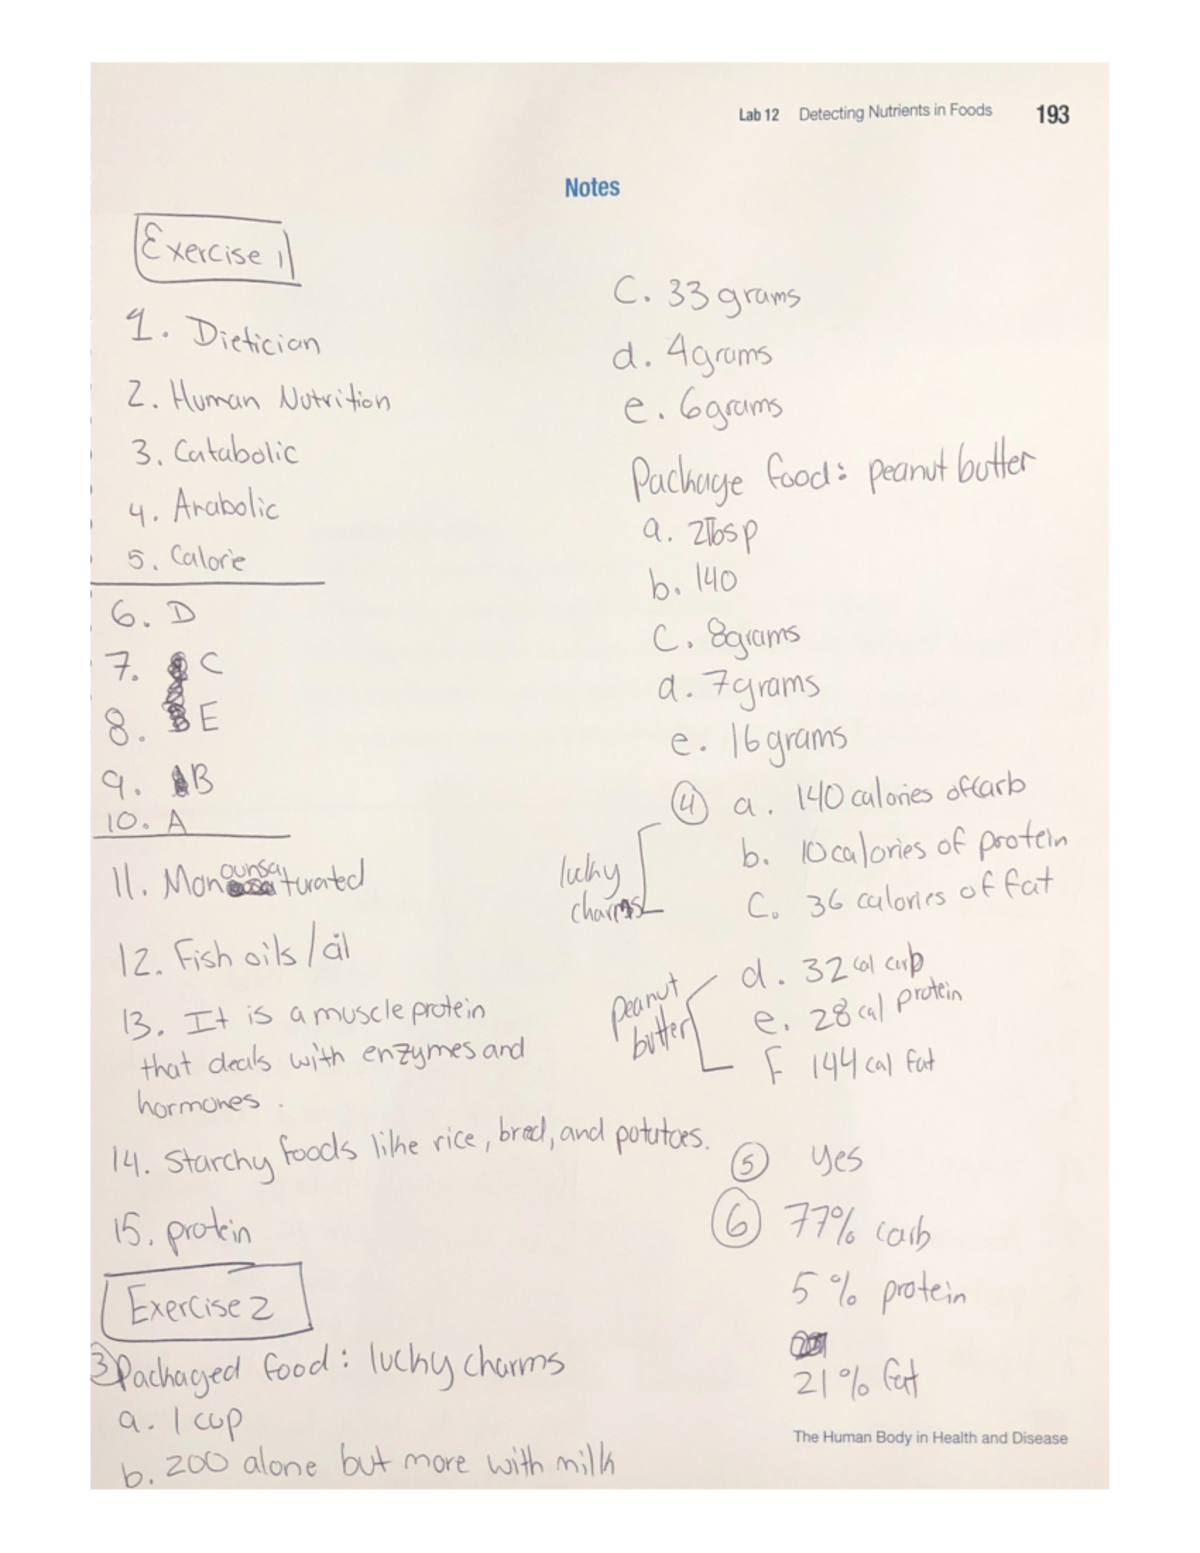 Lab 12 Detecting Nutrients in Foods 193
Notes
Exercise 1
1. Dietician
2. Human Nutrition
3. Catabolic
4. Anabolic
5. Calorie
6. D
7. C
8. E
9. B
10. A
11. Monounsaturated
12. Fish oils / oil
13. It is a muscle protein
that deals with enzymes and
hormones.
14. Starchy foods like rice, bred, and potatoes.
15. protein
Exercise 2
3 Packaged food: lucky charms
a. 1 cup
b. 200 alone but more with milk
C. 33 grams
d. 4 grams
e. 6 grams
Package food: peanut butter
a. 2Tbsp
b. 140
C. 8 grams
d. 7 grams
e. 16 grams
4 a. 140 calories of carb
lucky charms
b. 10 calories of protein
C. 36 calories of fat
peanut butter
d. 32 cal carb
e. 28 cal protein
F 144 cal fat
5 yes
6 77% carb
5% protein
21% fat
The Human Body in Health and Disease